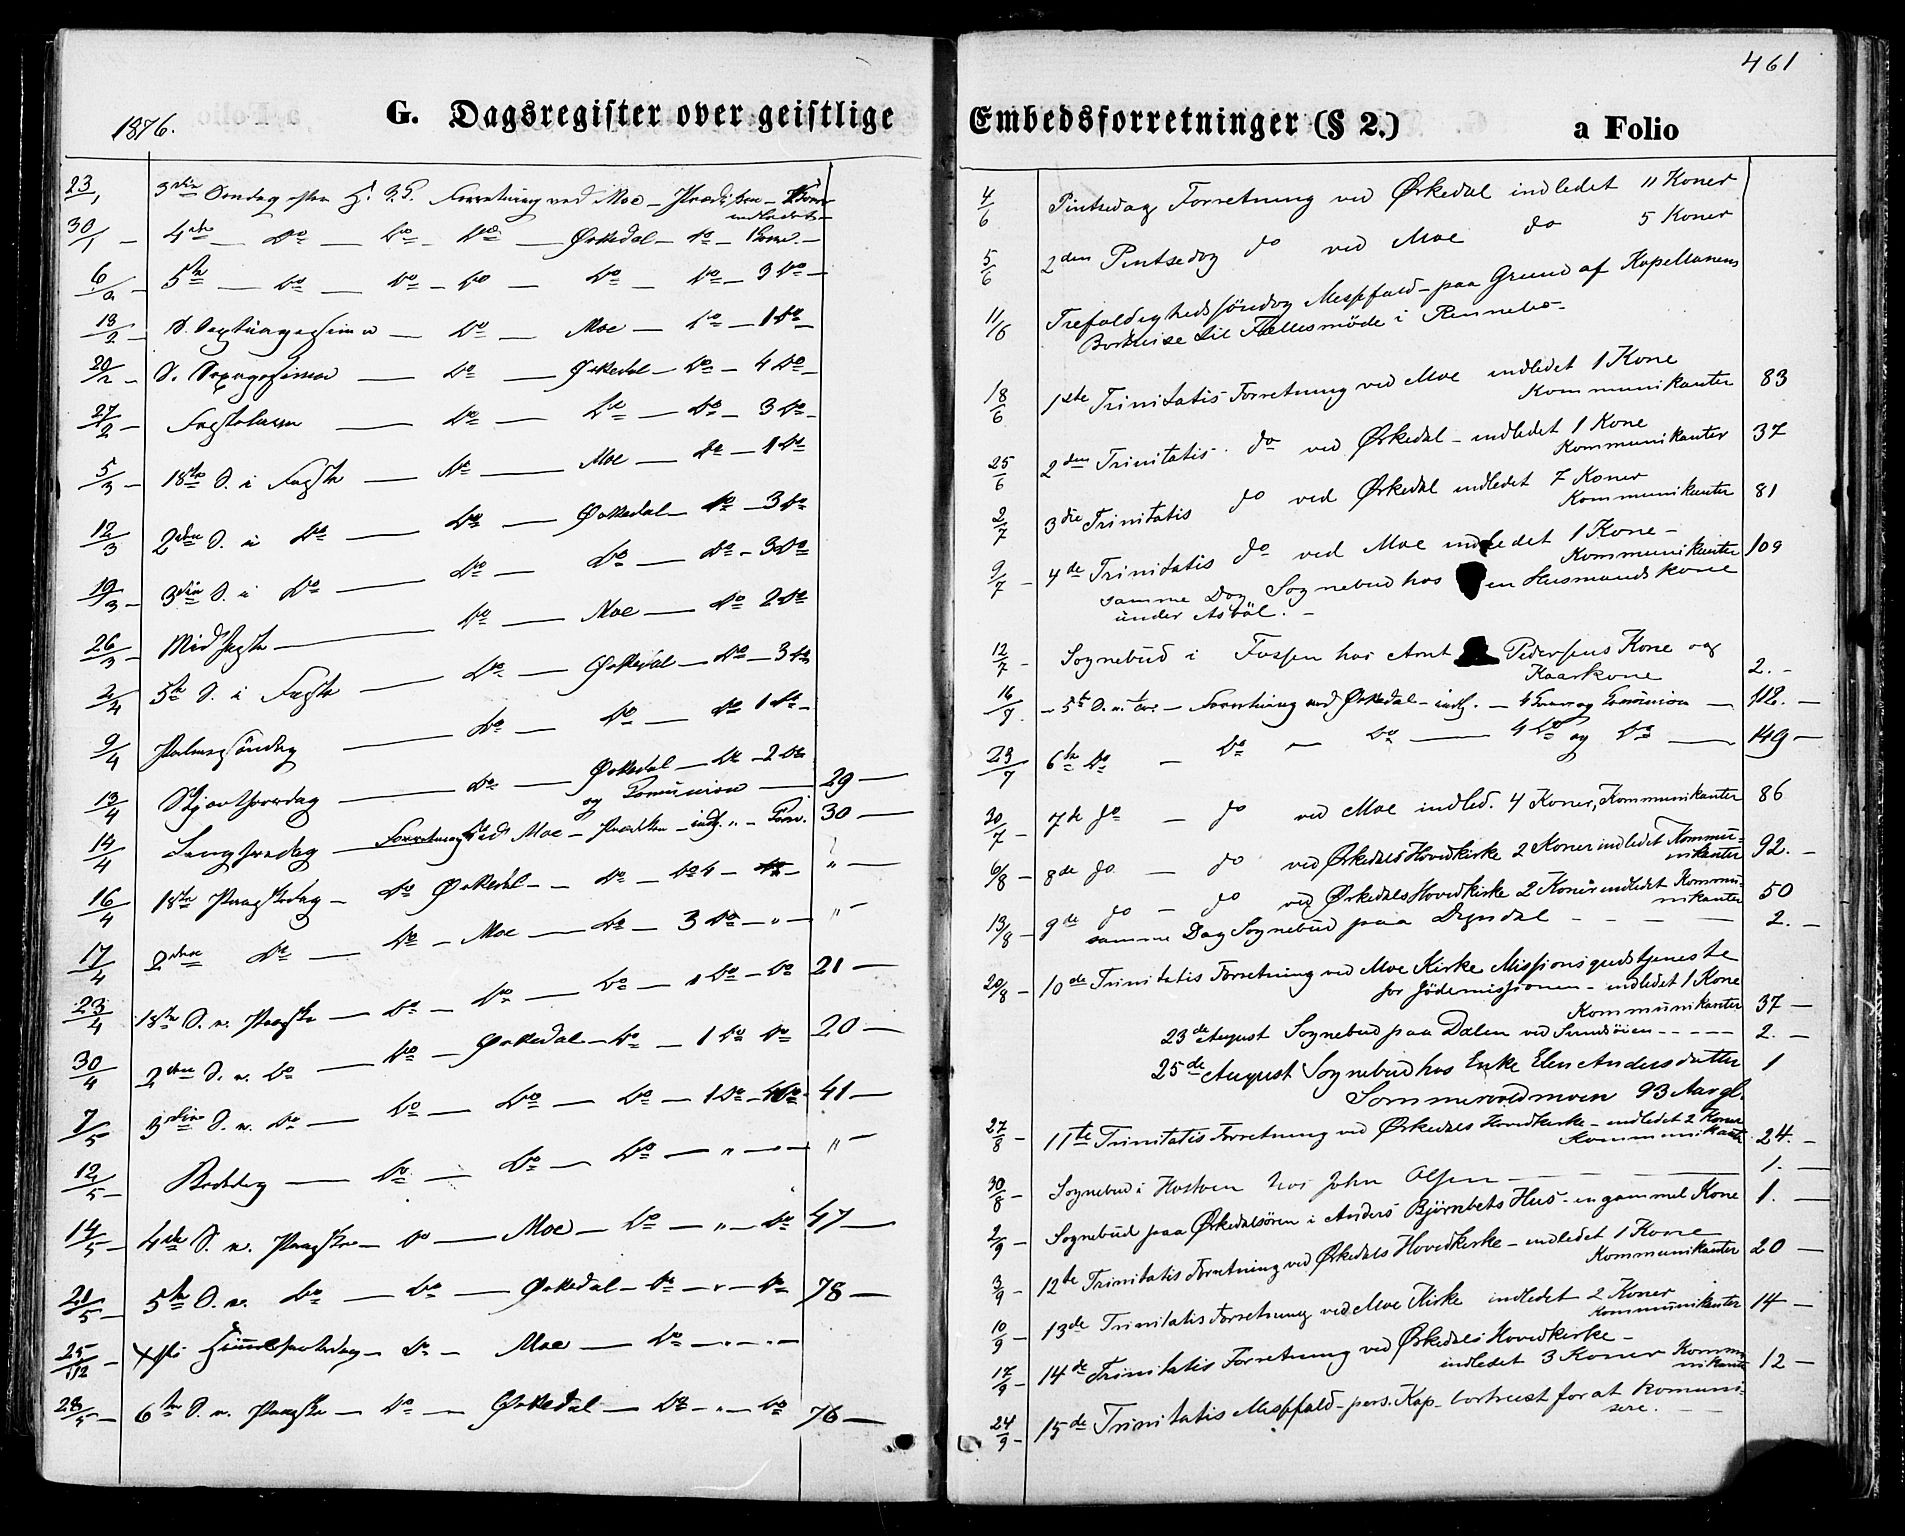 461
1876.
G. Dagsregister over geistlige
23/1 3die Søndag efter H. 3 K. Forretning ved Moe – Prædiken – 1 Kone
indledet –
30/1 – 4de – do – do – do – Ørkedal – do – 1 Kone –
6/2 – 5te – do – do – do – do – do – 3 do –
13/2 – S. Septuagesima – do – Moe – do – 1 do –
20/2 – S. Sexagesima – do – Ørkedal – do – 4 do –
27/2 – Fastelavn – do – do – do – 3 do –
5/3 – 1ste S. i Faste – do – Moe – do – 1 do
12/3 2den S. i do – do – Ørkedal – do – 3 do
19/3 – 3die S. i do – do – do – do – 3 do
26/3 – Midfaste – do – Moe – do 2 do
2/4 5te S. i Faste – do – Ørkedal – do – 3 do
9/4 Palmesøndag – do – do – do 1 do –
13/4 Skjærthorsdag – do – Ørkedal – do – 2 do
og Comunion – 29 –
14/4 Langfredag – Forretning ved Moe – Prædiken – indl. " – Com. 30 –
16/4 1ste Paaskedag – do Ørkedal – do – do 4 – do – " –
17/4 2den do – do – Moe – do – 3 do – " – " –
23/4 1ste S. e. Paaske – do – do – do – 1 do – do 21 –
30/4 2den S. e. do – do – Ørkedal – do – 1 do do 20 –
7/5 3die S. e. do – do – do – do – 1 do – do 41 –
12/5 – Bededag – do – do – do – " – " – " –
14/5 – 4de S. e. Paaske – do – Moe – do – " – do 47 –
21/5 – 5te S. e. do – do – Ørkedal – do – " – do 78 –
25/5 – Xsti Himmelfartsdag – do – Moe – do – " – " –
28/5 – 6te S. e. Paaske – do – Ørkedal – do – " – do 76 –
Embedsforretninger (§ 2.) a Folio
4/6 Pintsedag Forretning ved Ørkedal indledet 11 Koner
5/6 2den Pintsedag do ved Moe do 5 Koner
11/6 Trefoldighedssöndag Messfald – paa Grund af Kapellanens
Bortreise til Fællesmöde i Rennebo –
18/6 1ste Trinitatis Forretning ved Moe indledet 1 Kone
Kommunikanter 83
25/6 2den Trinitatis do ved Ørkedal – indledet 1 Kone
Kommunikanter 37
2/7 3die Trinitatis do ved Ørkedal indledet 7 Koner
Kommunikanter 81
9/7 – 4de Trinitatis do ved Moe indledet 1 Kone –
Kommunikanter 109
samme Dag Sognebud hos en Husmandskone
under Asböl. –
12/7 – Sognebud i Fossen hos Arnt Pedersens Kone og
Kaarkone 2. –
16/7 – 5te S. e. Tr. – Forretning ved Ørkedal – indl. – 4 Koner og Comunion – 112. –
23/7 6te do – do – do – 4 do og do – 149 –
30/7 – 7de do – do ved Moe indled. 4 Koner, Kommunikanter 86
6/8 – 8de do – do ved Ørkedals Hovedkirke 2 Koner indledet Kommu-
nikanter 92. –
13/8 – 9de do – do ved Ørkedals Hovedkirke 2 Koner indledet Kommu-
nikanter 50
samme Dag Sognebud paa Dyrdal – – – – 2. –
20/8 – 10de Trinitatis Forretning ved Moe Kirke Missionsgudstjeneste
for Jödemissionen – indledet 1 Kone
Kommunikanter 37 –
23de August Sognebud paa Dalen ved – – – – 2. –
25de August Sognebud hos Enke Elen Andersdatter 1
Sommervoldmoen 93 Aar gl.
27/8 – 11te Trinitatis Forretning ved Ørkedals Hovedkirke – indledet 2 Koner
Kommunikant. 24. –
30/8 – Sognebud i Hostven hos John Olsen – – – 1. –
2/9 – Sognebud paa Ørkedalsören i Anders Björnbets Hus – en gammel Kone 1. –
3/9 – 12te Trinitatis Forretning ved Ørkedals Hovedkirke – indledet 1 Kone
Kommunikanter 20 –
10/9 – 13de Trinitatis Forretning ved Moe Kirke indledet 2 Koner
Kommunikanter 14 –
17/9 – 14de Trinitatis Forretning ved Ørkedals Hovedkirke –
indledet 3 Koner Kommu-
nikanter 12 –
24/9 – 15de Trinitatis Messfald – pers. Kap. bortreist for at komuni-
sere. –